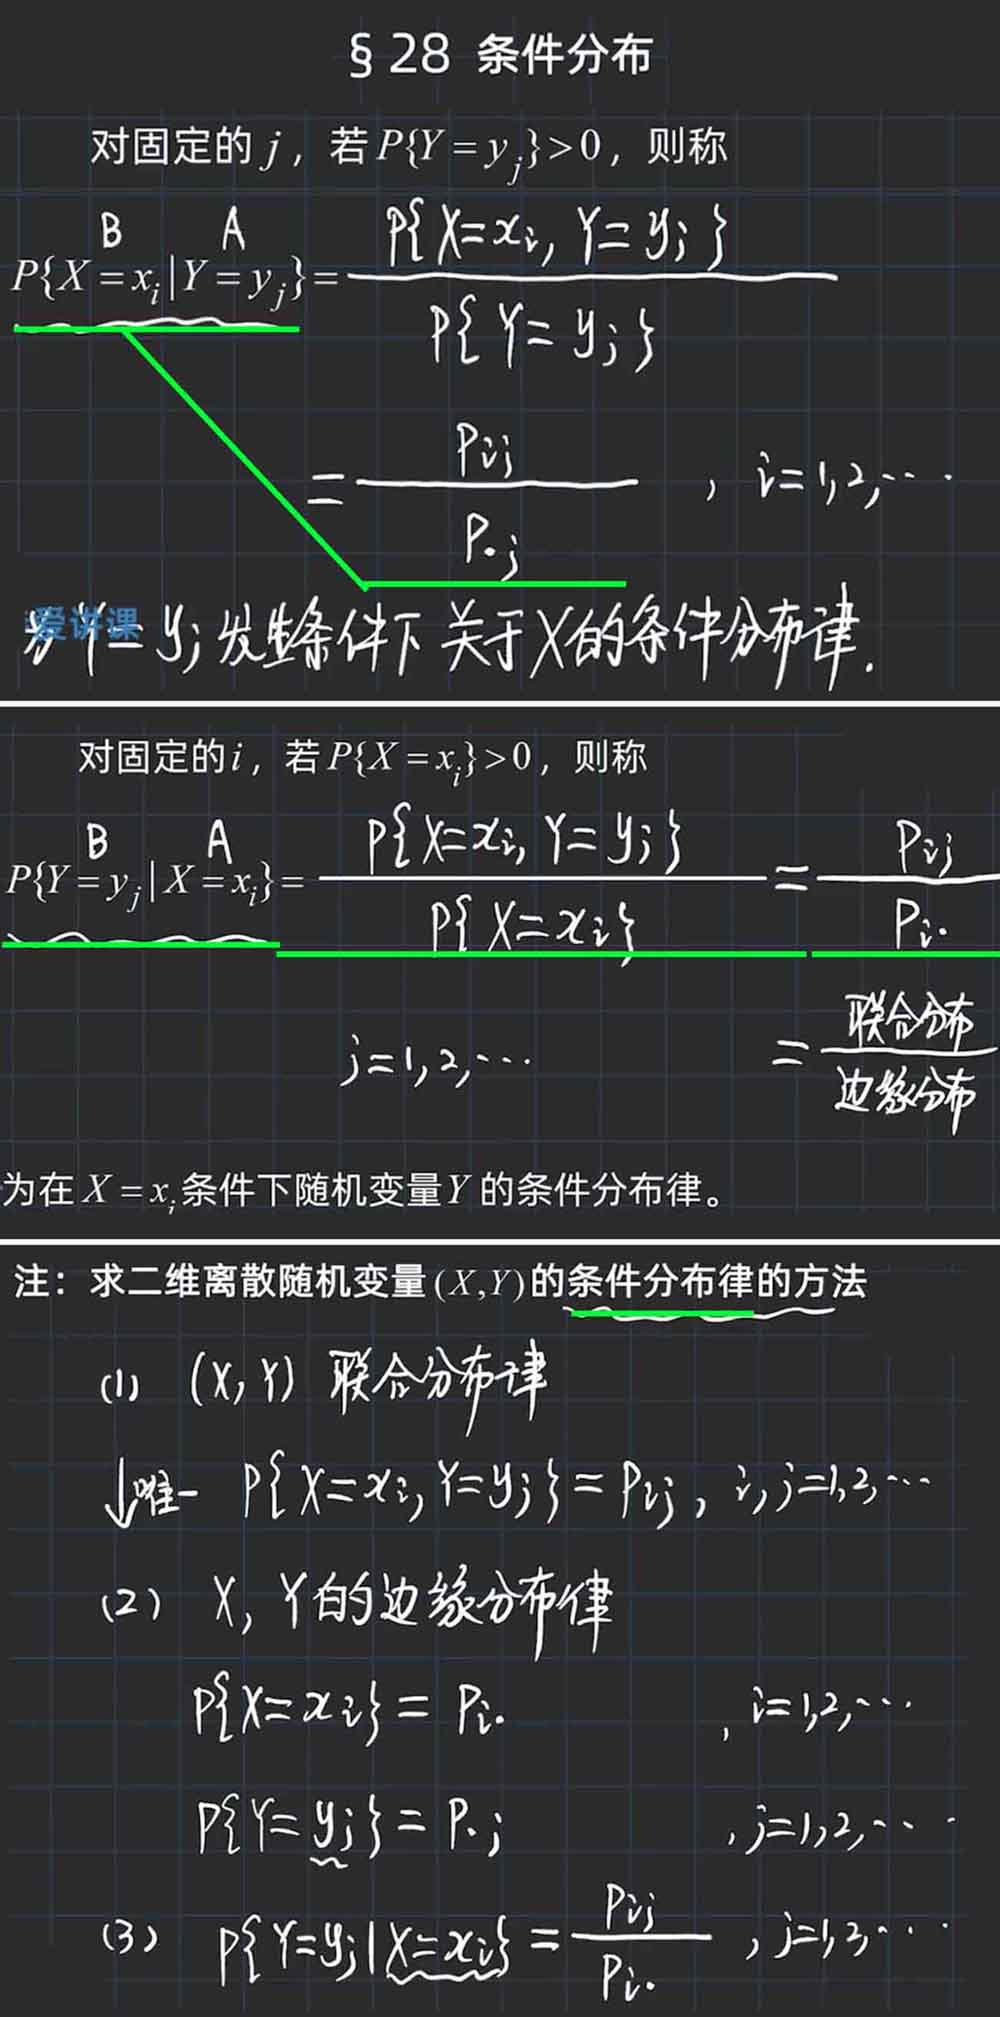 § 28 条件分布
对固定的 j，若 P{Y = y_j} > 0，则称
B A
P{X = x_i | Y = y_j} = P{X=x_i, Y=y_j} / P{Y=y_j}
= P_ij / P_·j , i=1,2,…
爱讲课
为 Y=y_j 发生条件下关于X的条件分布律.
对固定的 i，若 P{X = x_i} > 0，则称
B A
P{Y = y_j | X = x_i} = P{X=x_i, Y=y_j} / P{X=x_i} = P_ij / P_i·
j=1,2,… = 联合分布 / 边缘分布
为在 X = x_i 条件下随机变量 Y 的条件分布律。
注：求二维离散随机变量 (X,Y) 的条件分布律的方法
(1) (X, Y) 联合分布律
↓唯一 P{X=x_i, Y=y_j} = P_ij , i, j=1,2,…
(2) X, Y的边缘分布律
P{X=x_i} = P_i· , i=1,2,…
P{Y=y_j} = P_·j , j=1,2,…
(3) P{Y=y_j|X=x_i} = P_ij / P_i· , j=1,2,…